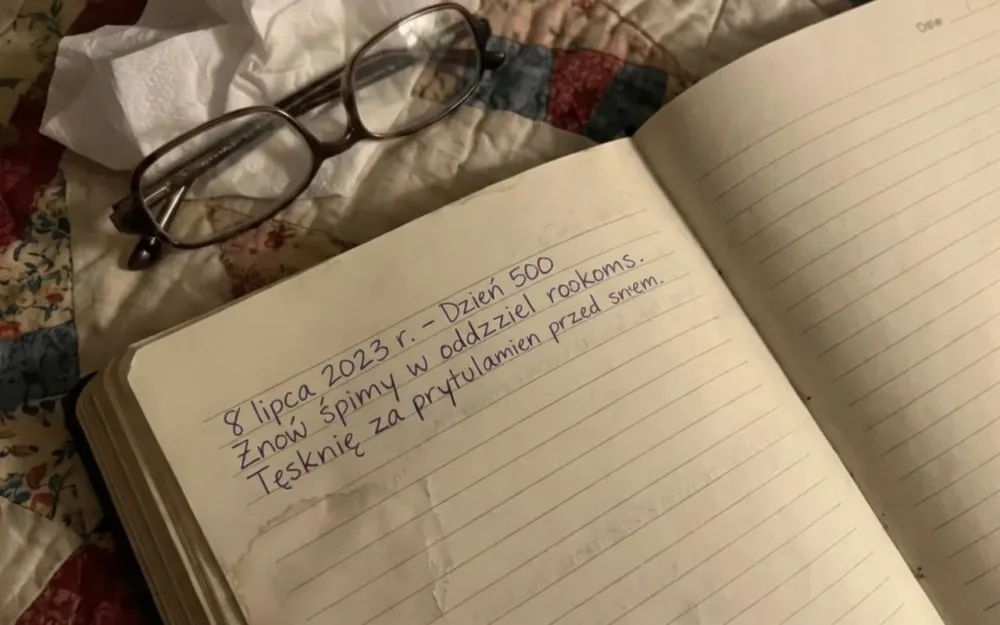 Date
8 lipca 2023 r. – Dzień 500
Znów śpimy w oddzziel rookoms.
Tęsknię za prytulamien przed snem.